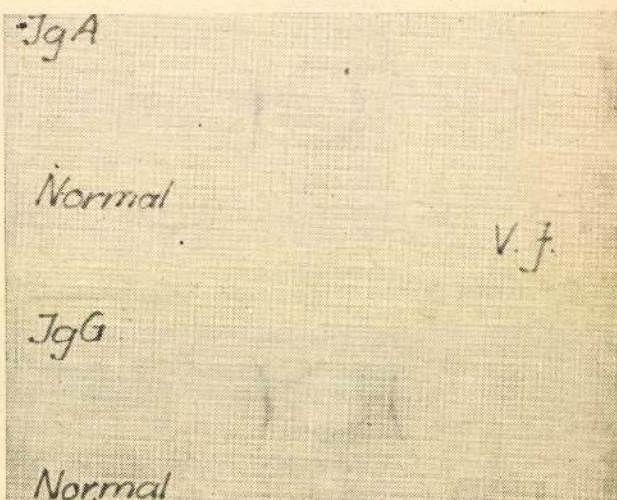 JgA
Normal
V. f.
JgG
Normal